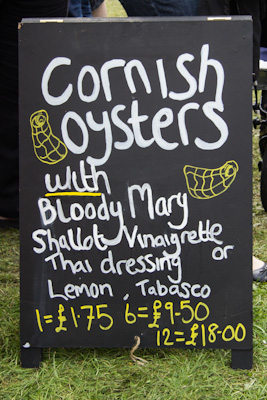 Cornish
oysters
with
Bloody Mary
Shallot Vinaigrette
Thai dressing or
Lemon, Tabasco
1=£1.75 6=£9-50
12=£18-00